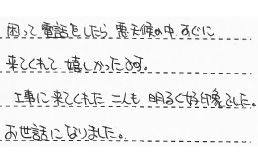 困って電話をしたら悪天候の中すぐに
来てくれて嬉しかったです。
工事に来てくれた二人も明るく好印象でした。
お世話になりました。